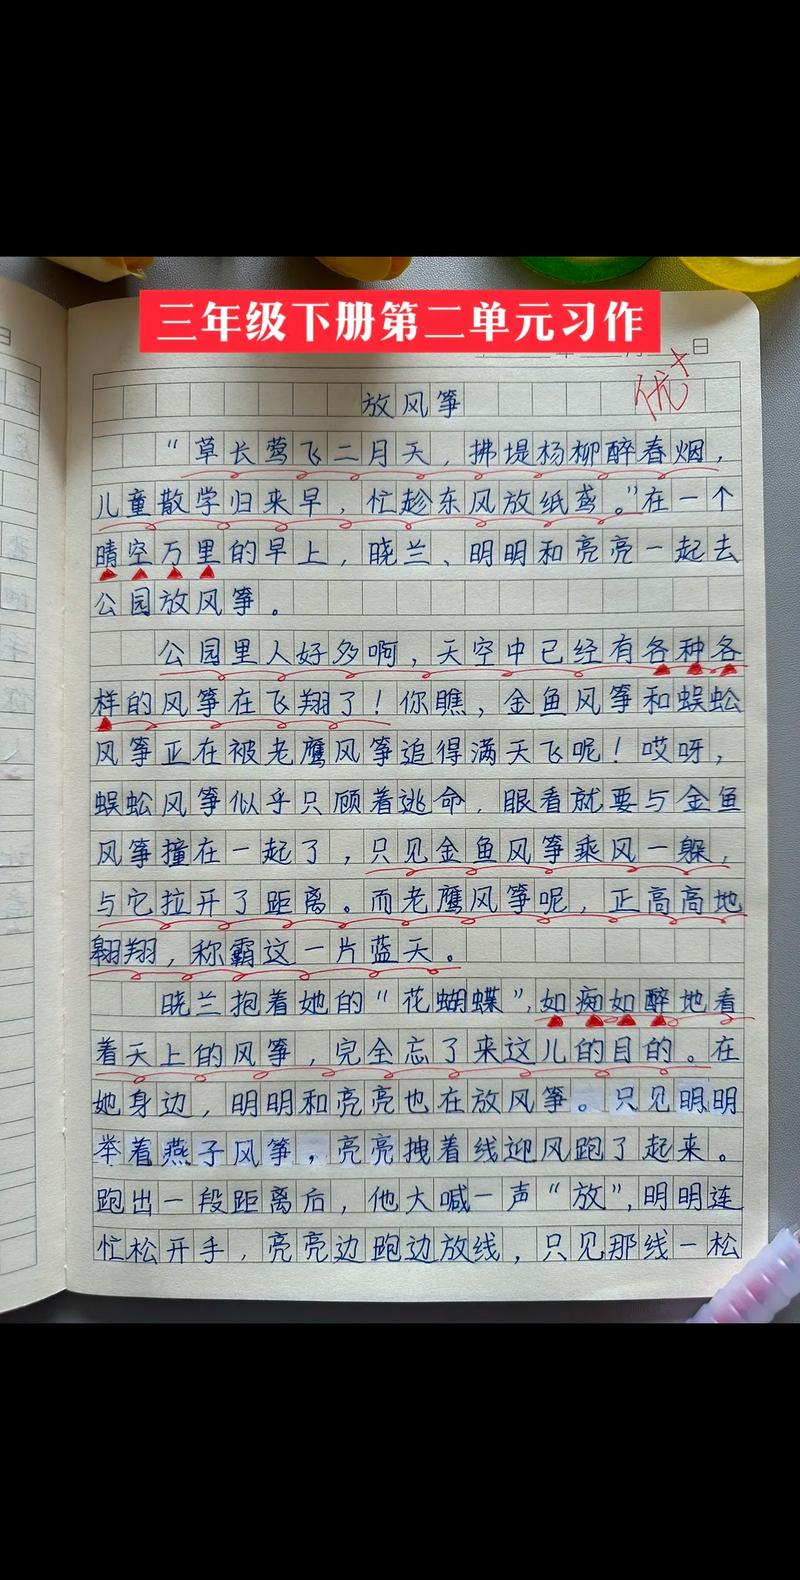 三年级下册第二单元习作
日
优+
放风筝
“草长莺飞二月天，拂堤杨柳醉春烟，
儿童散学归来早，忙趁东风放纸鸢。”在一个
晴空万里的早上，晓兰、明明和亮亮一起去
公园放风筝。
公园里人好多啊，天空中已经有各种各
样的风筝在飞翔了！你瞧，金鱼风筝和蜈蚣
风筝正在被老鹰风筝追得满天飞呢！哎呀，
蜈蚣风筝似乎只顾着逃命，眼看就要与金鱼
风筝撞在一起了，只见金鱼风筝乘风一躲，
与它拉开了距离。而老鹰风筝呢，正高高地
翱翔，称霸这一片蓝天。
晓兰抱着她的“花蝴蝶”，如痴如醉地看
着天上的风筝，完全忘了来这儿的目的。在
她身边，明明和亮亮也在放风筝。只见明明
举着燕子风筝，亮亮拽着线迎风跑了起来。
跑出一段距离后，他大喊一声“放”，明明连
忙松开手，亮亮边跑边放线，只见那线一松